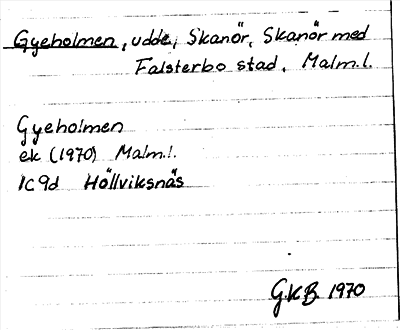 Gyeholmen, udde, Skanör, Skanör med
Falsterbo stad, Malm.l.
Gyeholmen
ek (1970) Malm.l.
1C 9d Höllviksnäs
G.K.B. 1970